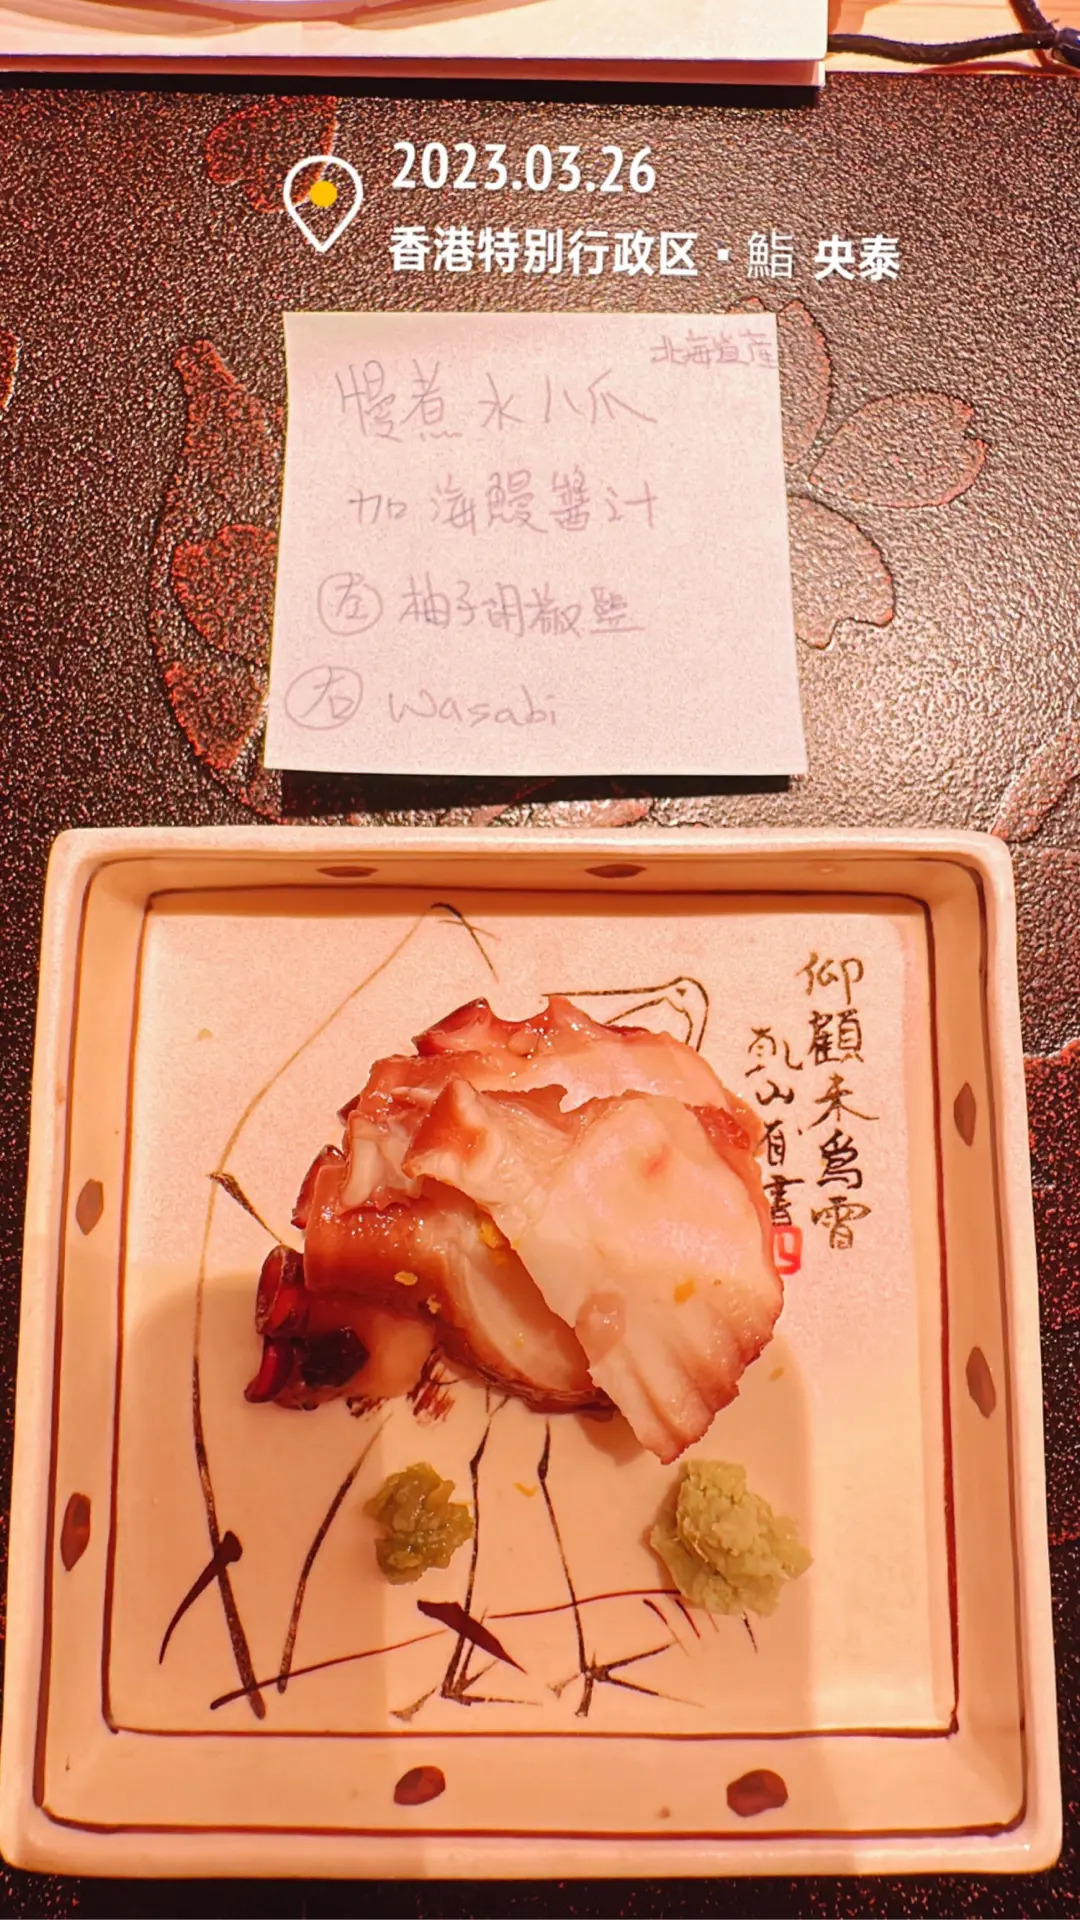 2023.03.26
香港特别行政区·鮨 央泰
北海道産
慢煮水八爪
加海鰻醬汁
左 柚子胡椒鹽
右 Wasabi
仰顧未為雪
乾山省書